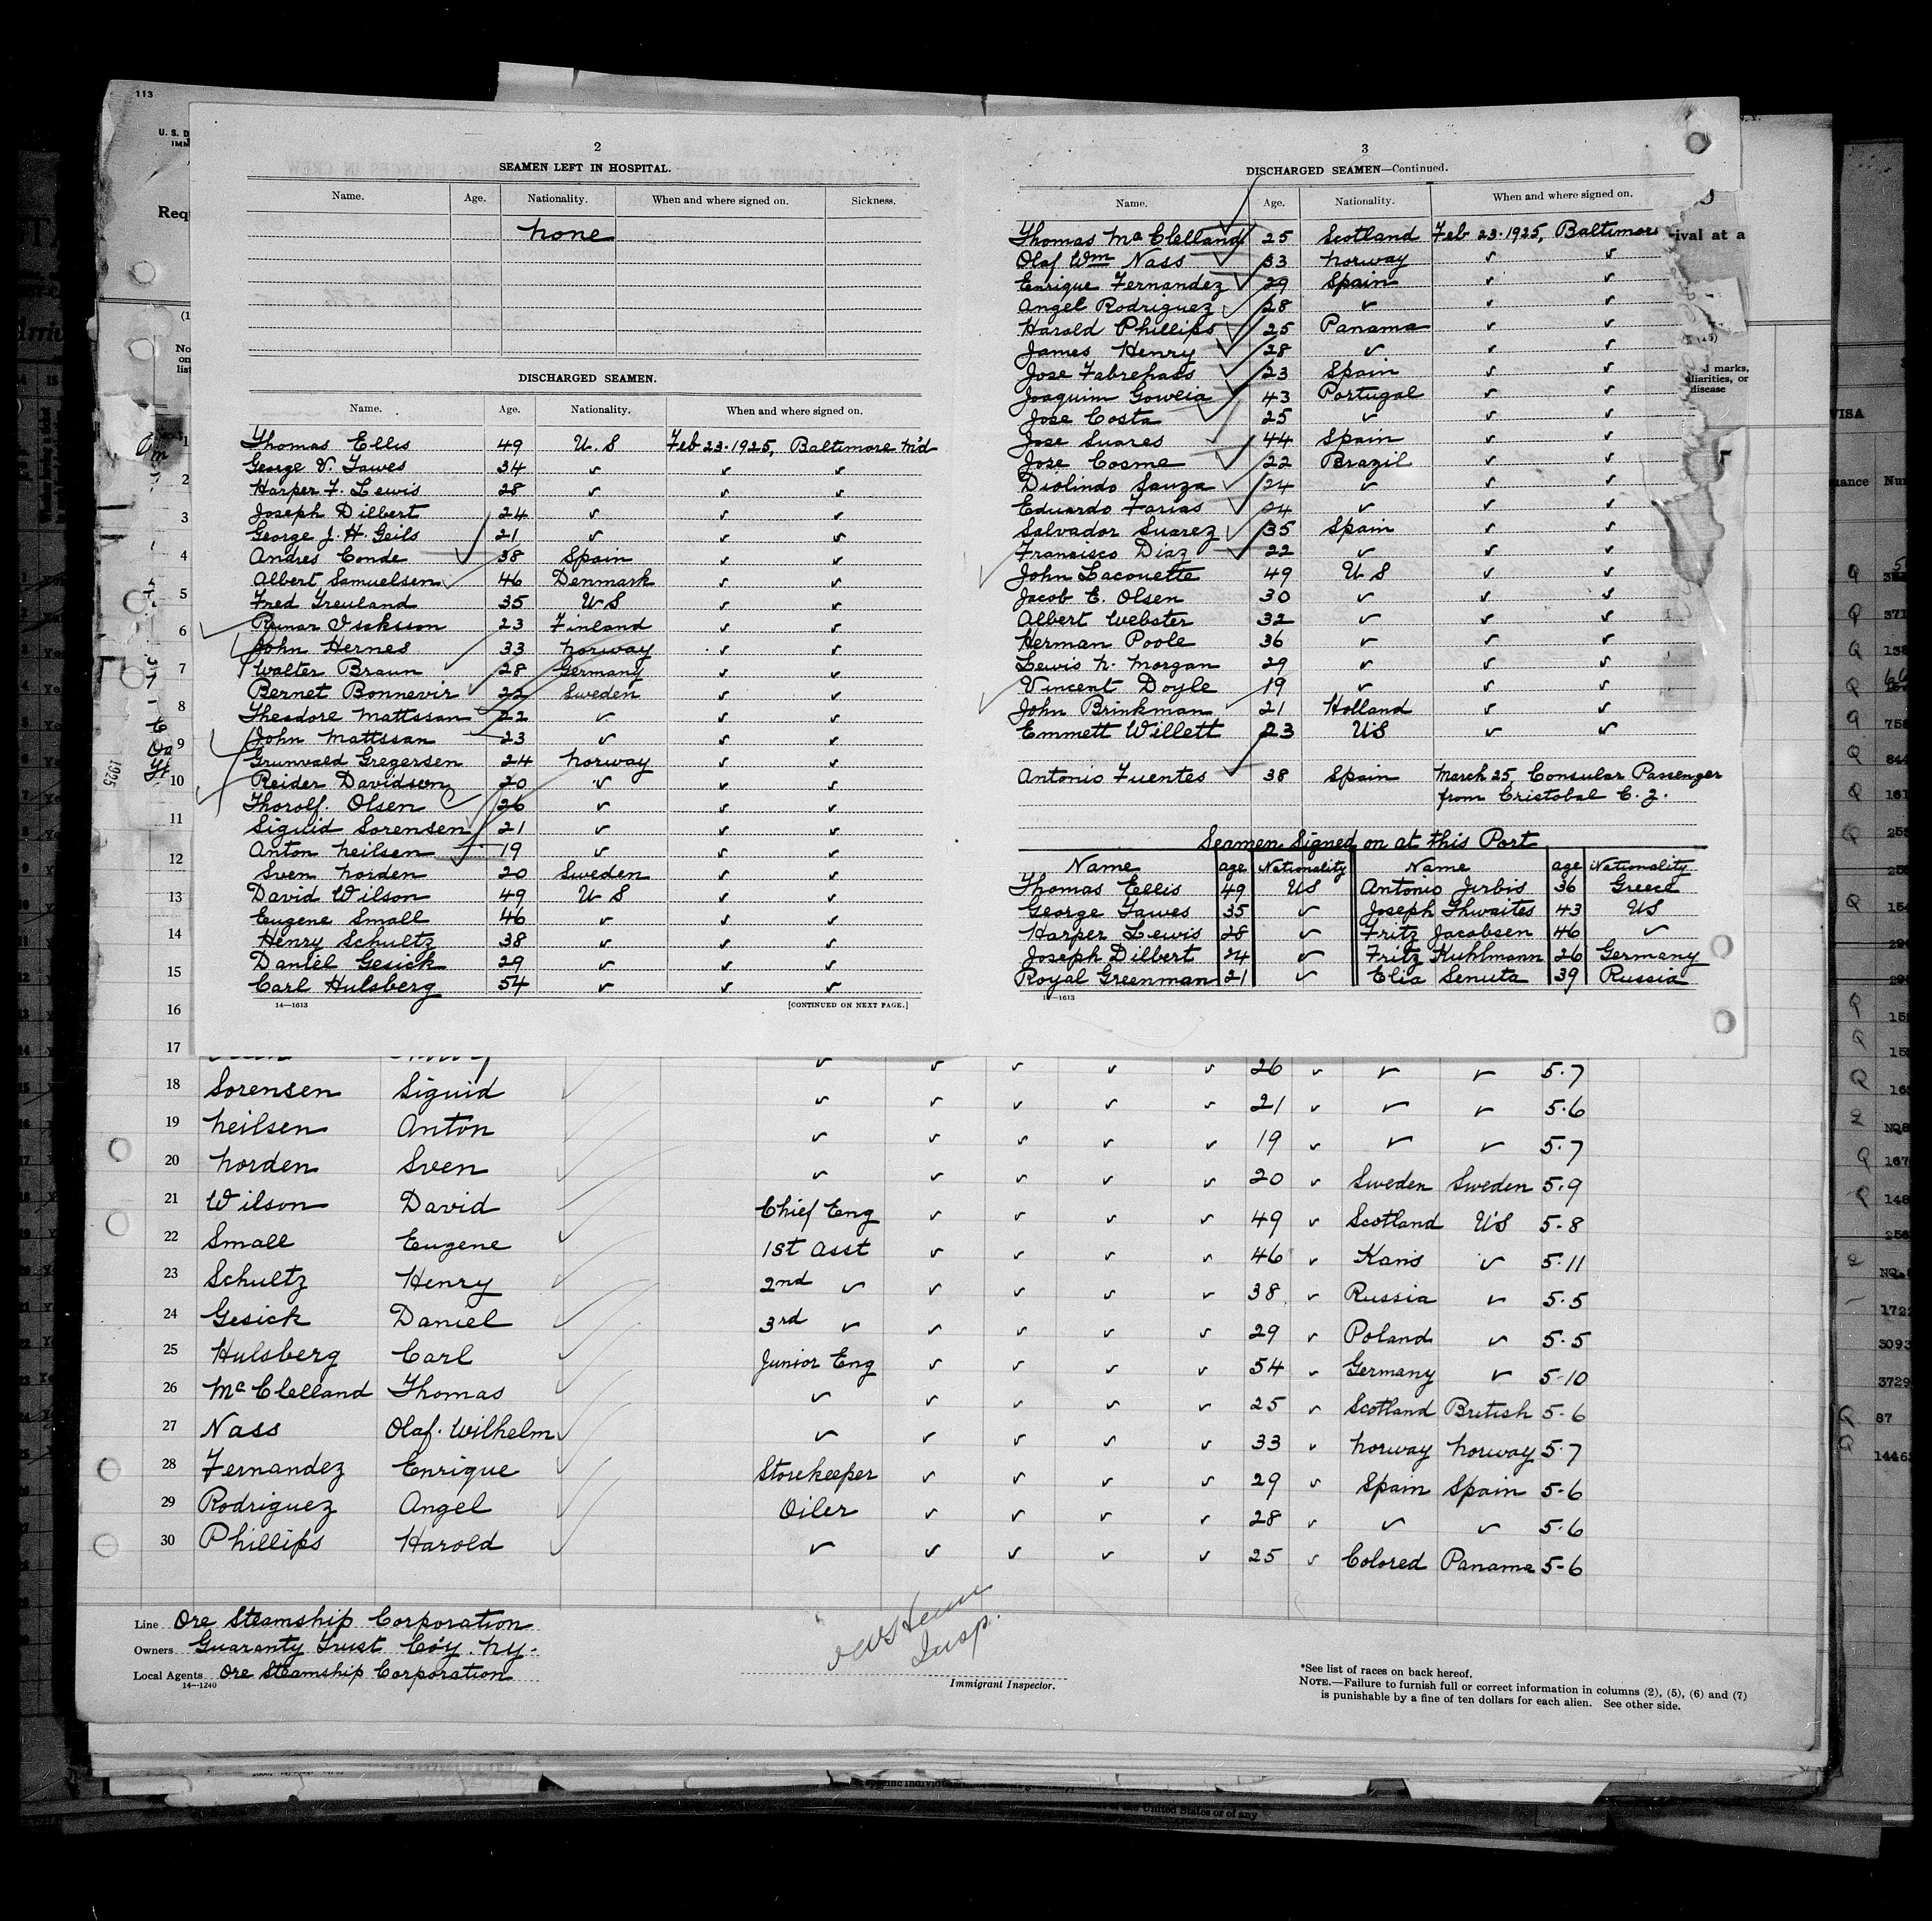 113
U. S. D
IMM
Req
2
SEAMEN LEFT IN HOSPITAL.
Name. Age. Nationality. When and where signed on. Sickness.
None
DISCHARGED SEAMEN.
Name. Age. Nationality. When and where signed on.
Thomas Ellis 49 U.S Feb 23-1925, Baltimore Md
George V. Tawes 34 ✓ ✓ ✓
Harper F. Lewis 28 ✓ ✓ ✓
Joseph Dilbert 24 ✓ ✓ ✓
George J. H. Geils 21 ✓ ✓ ✓
Andres Conde 38 Spain ✓ ✓
Albert Samuelsen 46 Denmark ✓ ✓
Fred Greuland 35 US ✓ ✓
Runar Isaksson 23 Finland ✓ ✓
John Hernes 33 Norway ✓ ✓
Walter Braun 28 Germany ✓ ✓
Bernet Bonnevir 22 Sweden ✓ ✓
Theodore Mattssan 22 ✓ ✓ ✓
John Mattssan 23 ✓ ✓ ✓
Grunvald Gregersen 24 Norway ✓ ✓
Reider Davidsen 20 ✓ ✓ ✓
Thorolf. Olsen 26 ✓ ✓ ✓
Siguid Sorensen 21 ✓ ✓ ✓
Anton Neilsen 19 ✓ ✓ ✓
Sven Norden 20 Sweden ✓ ✓
David Wilson 49 US ✓ ✓
Eugene Small 46 ✓ ✓ ✓
Henry Schultz 38 ✓ ✓ ✓
Daniel Gesick 29 ✓ ✓ ✓
Carl Hulsberg 54 ✓ ✓ ✓
14—1613 [CONTINUED ON NEXT PAGE.]
3
DISCHARGED SEAMEN—Continued.
Name. Age. Nationality. When and where signed on.
Thomas McClelland 25 Scotland Feb 23-1925, Baltimore
Olaf Wm Nass 33 Norway ✓ ✓
Enrique Fernandez 29 Spain ✓ ✓
Angel Rodriguez 28 ✓ ✓ ✓
Harold Phillips 25 Panama ✓ ✓
James Henry 28 ✓ ✓ ✓
Jose Fabrehass 23 Spain ✓ ✓
Joaquim Goweia 43 Portugal ✓ ✓
Jose Costa 25 ✓ ✓ ✓
Jose Suares 44 Spain ✓ ✓
Jose Cosme 22 Brazil ✓ ✓
Diolindo Sauza 24 ✓ ✓ ✓
Eduardo Farias 24 ✓ ✓ ✓
Salvador Suarez 35 Spain ✓ ✓
Francisco Diaz 22 ✓ ✓ ✓
John Lacouette 49 US ✓ ✓
Jacob E. Olsen 30 ✓ ✓ ✓
Albert Webster 32 ✓ ✓ ✓
Herman Poole 36 ✓ ✓ ✓
Lewis N. Morgan 29 ✓ ✓ ✓
Vincent Doyle 19 ✓ ✓ ✓
John Brinkman 21 Holland ✓ ✓
Emmett Willett 23 US ✓ ✓
Antonio Fuentes 38 Spain March 25, Consular Passenger
from Cristobal C. Z.
Seamen Signed on at this Port
Name age Nationality Name age Nationality
Thomas Ellis 49 US Antonio Jirbis 36 Greece
George Tawes 35 ✓ Joseph Thwaites 43 US
Harper Lewis 28 ✓ Fritz Jacobsen 46 ✓
Joseph Dilbert 24 ✓ Fritz Kuhlmann 26 Germany
Royal Greenman 21 ✓ Elia Senuta 39 Russia
14—1613
ival at a
l marks,
uliarities, or
disease
1
2
3
4
5
6
7
8
9
10
11
12
13
14
15
16
17 ✓ ✓ ✓ ✓ ✓ 26 ✓ ✓ ✓ 5-7
18 Sorensen Siguid ✓ ✓ ✓ ✓ ✓ 21 ✓ ✓ ✓ 5-6
19 Neilsen Anton ✓ ✓ ✓ ✓ ✓ 19 ✓ ✓ ✓ 5-7
20 Norden Sven ✓ ✓ ✓ ✓ ✓ 20 ✓ Sweden Sweden 5-9
21 Wilson David Chief Eng ✓ ✓ ✓ ✓ 49 ✓ Scotland US 5-8
22 Small Eugene 1st Asst ✓ ✓ ✓ ✓ 46 ✓ Kans ✓ 5-11
23 Schultz Henry 2nd ✓ ✓ ✓ ✓ ✓ 38 ✓ Russia ✓ 5-5
24 Gesick Daniel 3rd ✓ ✓ ✓ ✓ ✓ 29 ✓ Poland ✓ 5-5
25 Hulsberg Carl Junior Eng ✓ ✓ ✓ ✓ 54 ✓ Germany ✓ 5-10
26 McClelland Thomas ✓ ✓ ✓ ✓ ✓ 25 ✓ Scotland British 5-6
27 Nass Olaf. Wilhelm ✓ ✓ ✓ ✓ ✓ 33 ✓ Norway Norway 5-7
28 Fernandez Enrique Storekeeper ✓ ✓ ✓ ✓ 29 ✓ Spain Spain 5-6
29 Rodriguez Angel Oiler ✓ ✓ ✓ ✓ 28 ✓ ✓ ✓ 5-6
30 Phillips Harold ✓ ✓ ✓ ✓ ✓ 25 ✓ Colored Panama 5-6
Line Ore Steamship Corporation
Owners Guaranty Trust Coy. NY-
Local Agents Ore Steamship Corporation
14—1240
Insp.
Immigrant Inspector.
*See list of races on back hereof.
NOTE.—Failure to furnish full or correct information in columns (2), (5), (6) and (7)
is punishable by a fine of ten dollars for each alien. See other side.